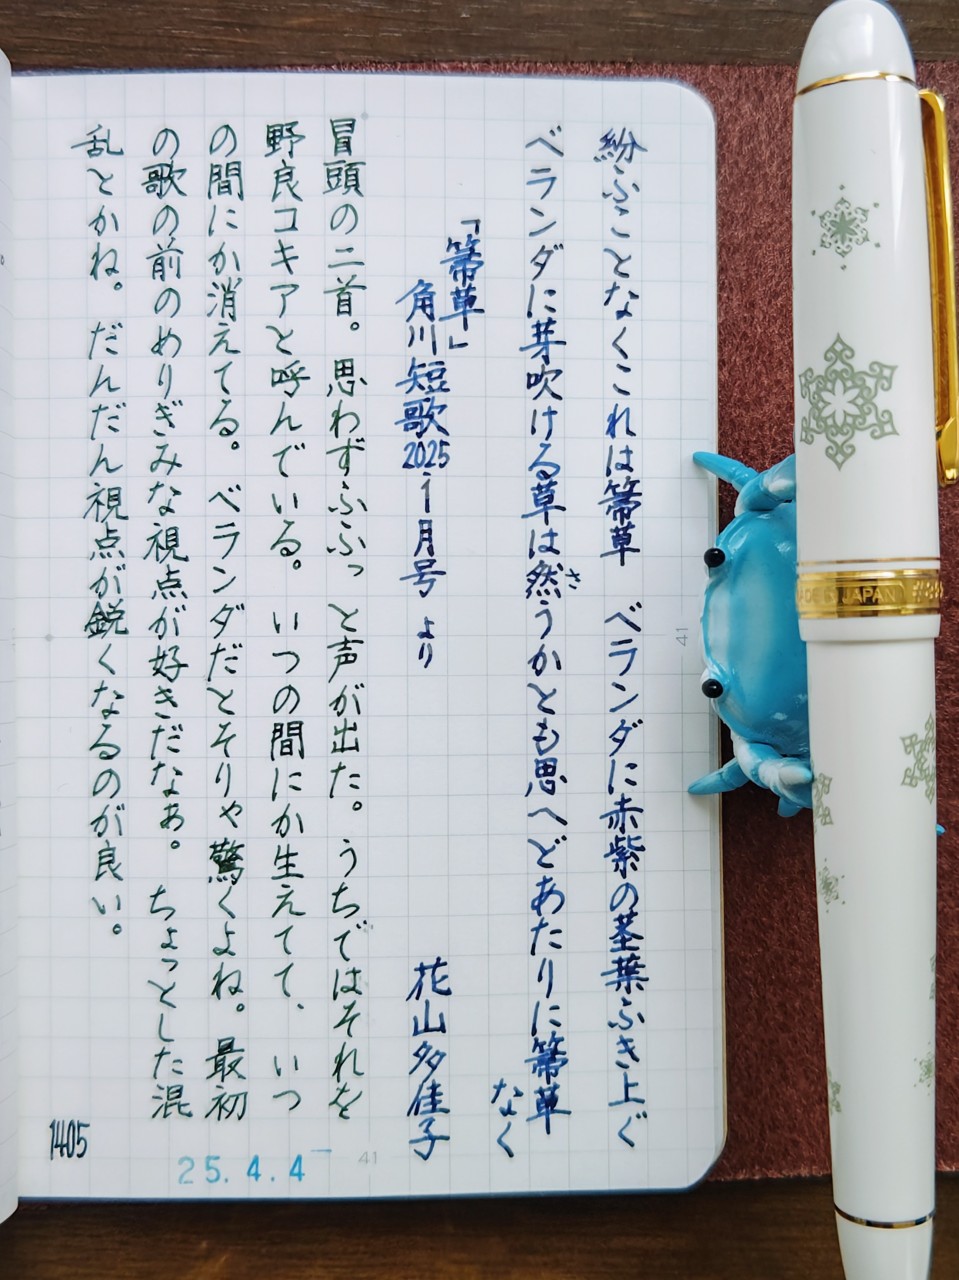 紛ふことなくこれは箒草　ベランダに赤紫の茎葉ふき上ぐ
ベランダに芽吹ける草は然うかとも思へどあたりに箒草
なく
さ
「箒草」
角川短歌2025年1月号より
花山多佳子
冒頭の二首。思わずふふっと声が出た。うちではそれを
野良コキアと呼んでいる。いつの間にか生えてて、いつ
の間にか消えてる。ベランダだとそりゃ驚くよね。最初
の歌の前のめりぎみな視点が好きだなぁ。ちょっとした混
乱とかね。だんだん視点が鋭くなるのが良い。
1405
25.4.4
41
41
MADE IN JAPAN